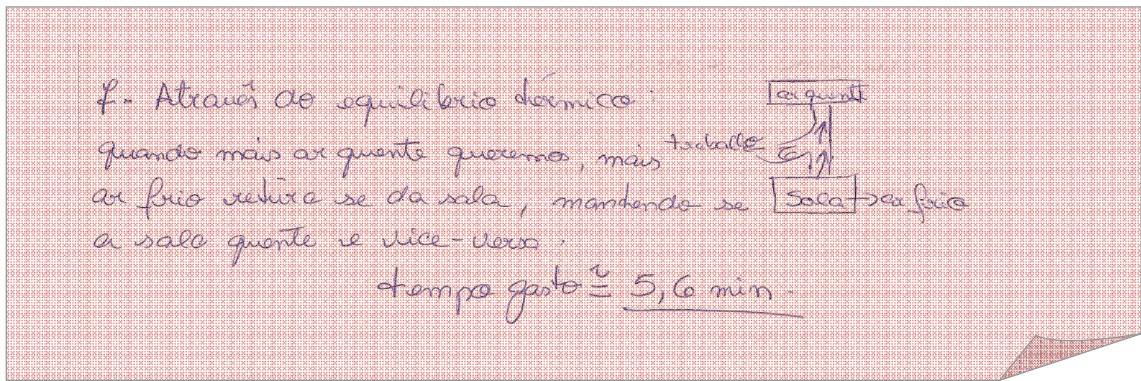 f- Através do equilíbrio térmico:
ar quente
quando mais ar quente queremos, mais
trabalho
ar frio retira se da sala, mantendo se
Sala → ar frio
a sala quente e vice-versa.
tempo gasto ≅ 5,6 min.